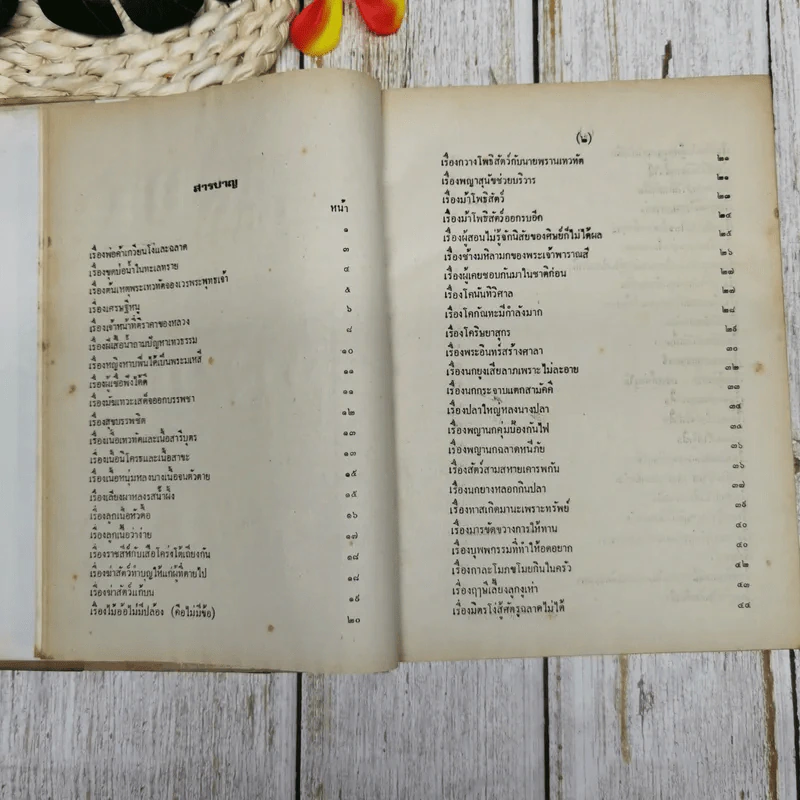 สารบาญ
หน้า
เรื่องพ่อค้าเกวียนโง่และฉลาด ๑
เรื่องขุดบ่อน้ำในทะเลทราย ๓
เรื่องต้นเหตุพระเทวทัตจองเวรพระพุทธเจ้า ๔
เรื่องเศรษฐีหนู ๕
เรื่องเจ้าหน้าที่ตีราคาของหลวง ๖
เรื่องผีเสื้อน้ำถามปัญหาเทวธรรม ๘
เรื่องหญิงหาบฟืนได้เป็นพระมเหสี ๑๐
เรื่องผู้เชื่อฟังได้ดี ๑๑
เรื่องมัฆเทวะเสด็จออกบรรพชา ๑๑
เรื่องสุขบรรพชิต ๑๒
เรื่องเนื้อเทวทัตและเนื้อสารีบุตร ๑๓
เรื่องเนื้อนิโครธและเนื้อสาขะ ๑๓
เรื่องเนื้อหนุ่มหลงนางเนื้อจนตัวตาย ๑๕
เรื่องเลียงผาหลงรสน้ำผึ้ง ๑๕
เรื่องลูกเนื้อหัวดื้อ ๑๖
เรื่องลูกเนื้อว่าง่าย ๑๗
เรื่องราชสีห์กับเสือโคร่งโต้เถียงกัน ๑๘
เรื่องฆ่าสัตว์ทำบุญให้แก่ผู้ที่ตายไป ๑๘
เรื่องฆ่าสัตว์แก้บน ๑๙
เรื่องไม้อ้อไม่มีปล้อง (คือไม่มีข้อ) ๒๐
(๒)
เรื่องกวางโพธิสัตว์กับนายพรานเทวทัต ๒๑
เรื่องพญาสุนัขช่วยบริวาร ๒๑
เรื่องม้าโพธิสัตว์ ๒๓
เรื่องม้าโพธิสัตว์ออกรบอีก ๒๔
เรื่องผู้สอนไม่รู้จักนิสัยของศิษย์ก็ไม่ได้ผล ๒๕
เรื่องช้างมหิลามกของพระเจ้าพาราณสี ๒๖
เรื่องผู้เคยชอบกันมาในชาติก่อน ๒๗
เรื่องโคนันทิวิศาล ๒๗
เรื่องโคกัณหะมีกำลังมาก ๒๘
เรื่องโคริษยาสุกร ๒๙
เรื่องพระอินทร์สร้างศาลา ๓๐
เรื่องนกยูงเสียลาภเพราะไม่ละอาย ๓๒
เรื่องนกกระจาบแตกสามัคคี ๓๓
เรื่องปลาใหญ่หลงนางปลา ๓๔
เรื่องพญานกคุ่มป้องกันไฟ ๓๕
เรื่องพญานกฉลาดหนีภัย ๓๖
เรื่องสัตว์สามสหายเคารพกัน ๓๖
เรื่องนกยางหลอกกินปลา ๓๗
เรื่องทาสเกิดมานะเพราะทรัพย์ ๓๙
เรื่องมารขัดขวางการให้ทาน ๔๐
เรื่องบุพพกรรมที่ทำให้อดอยาก ๔๐
เรื่องกาละโมภขโมยกินในครัว ๔๒
เรื่องฤาษีเลี้ยงลูกงูเห่า ๔๓
เรื่องมิตรโง่สู้ศัตรูฉลาดไม่ได้ ๔๔